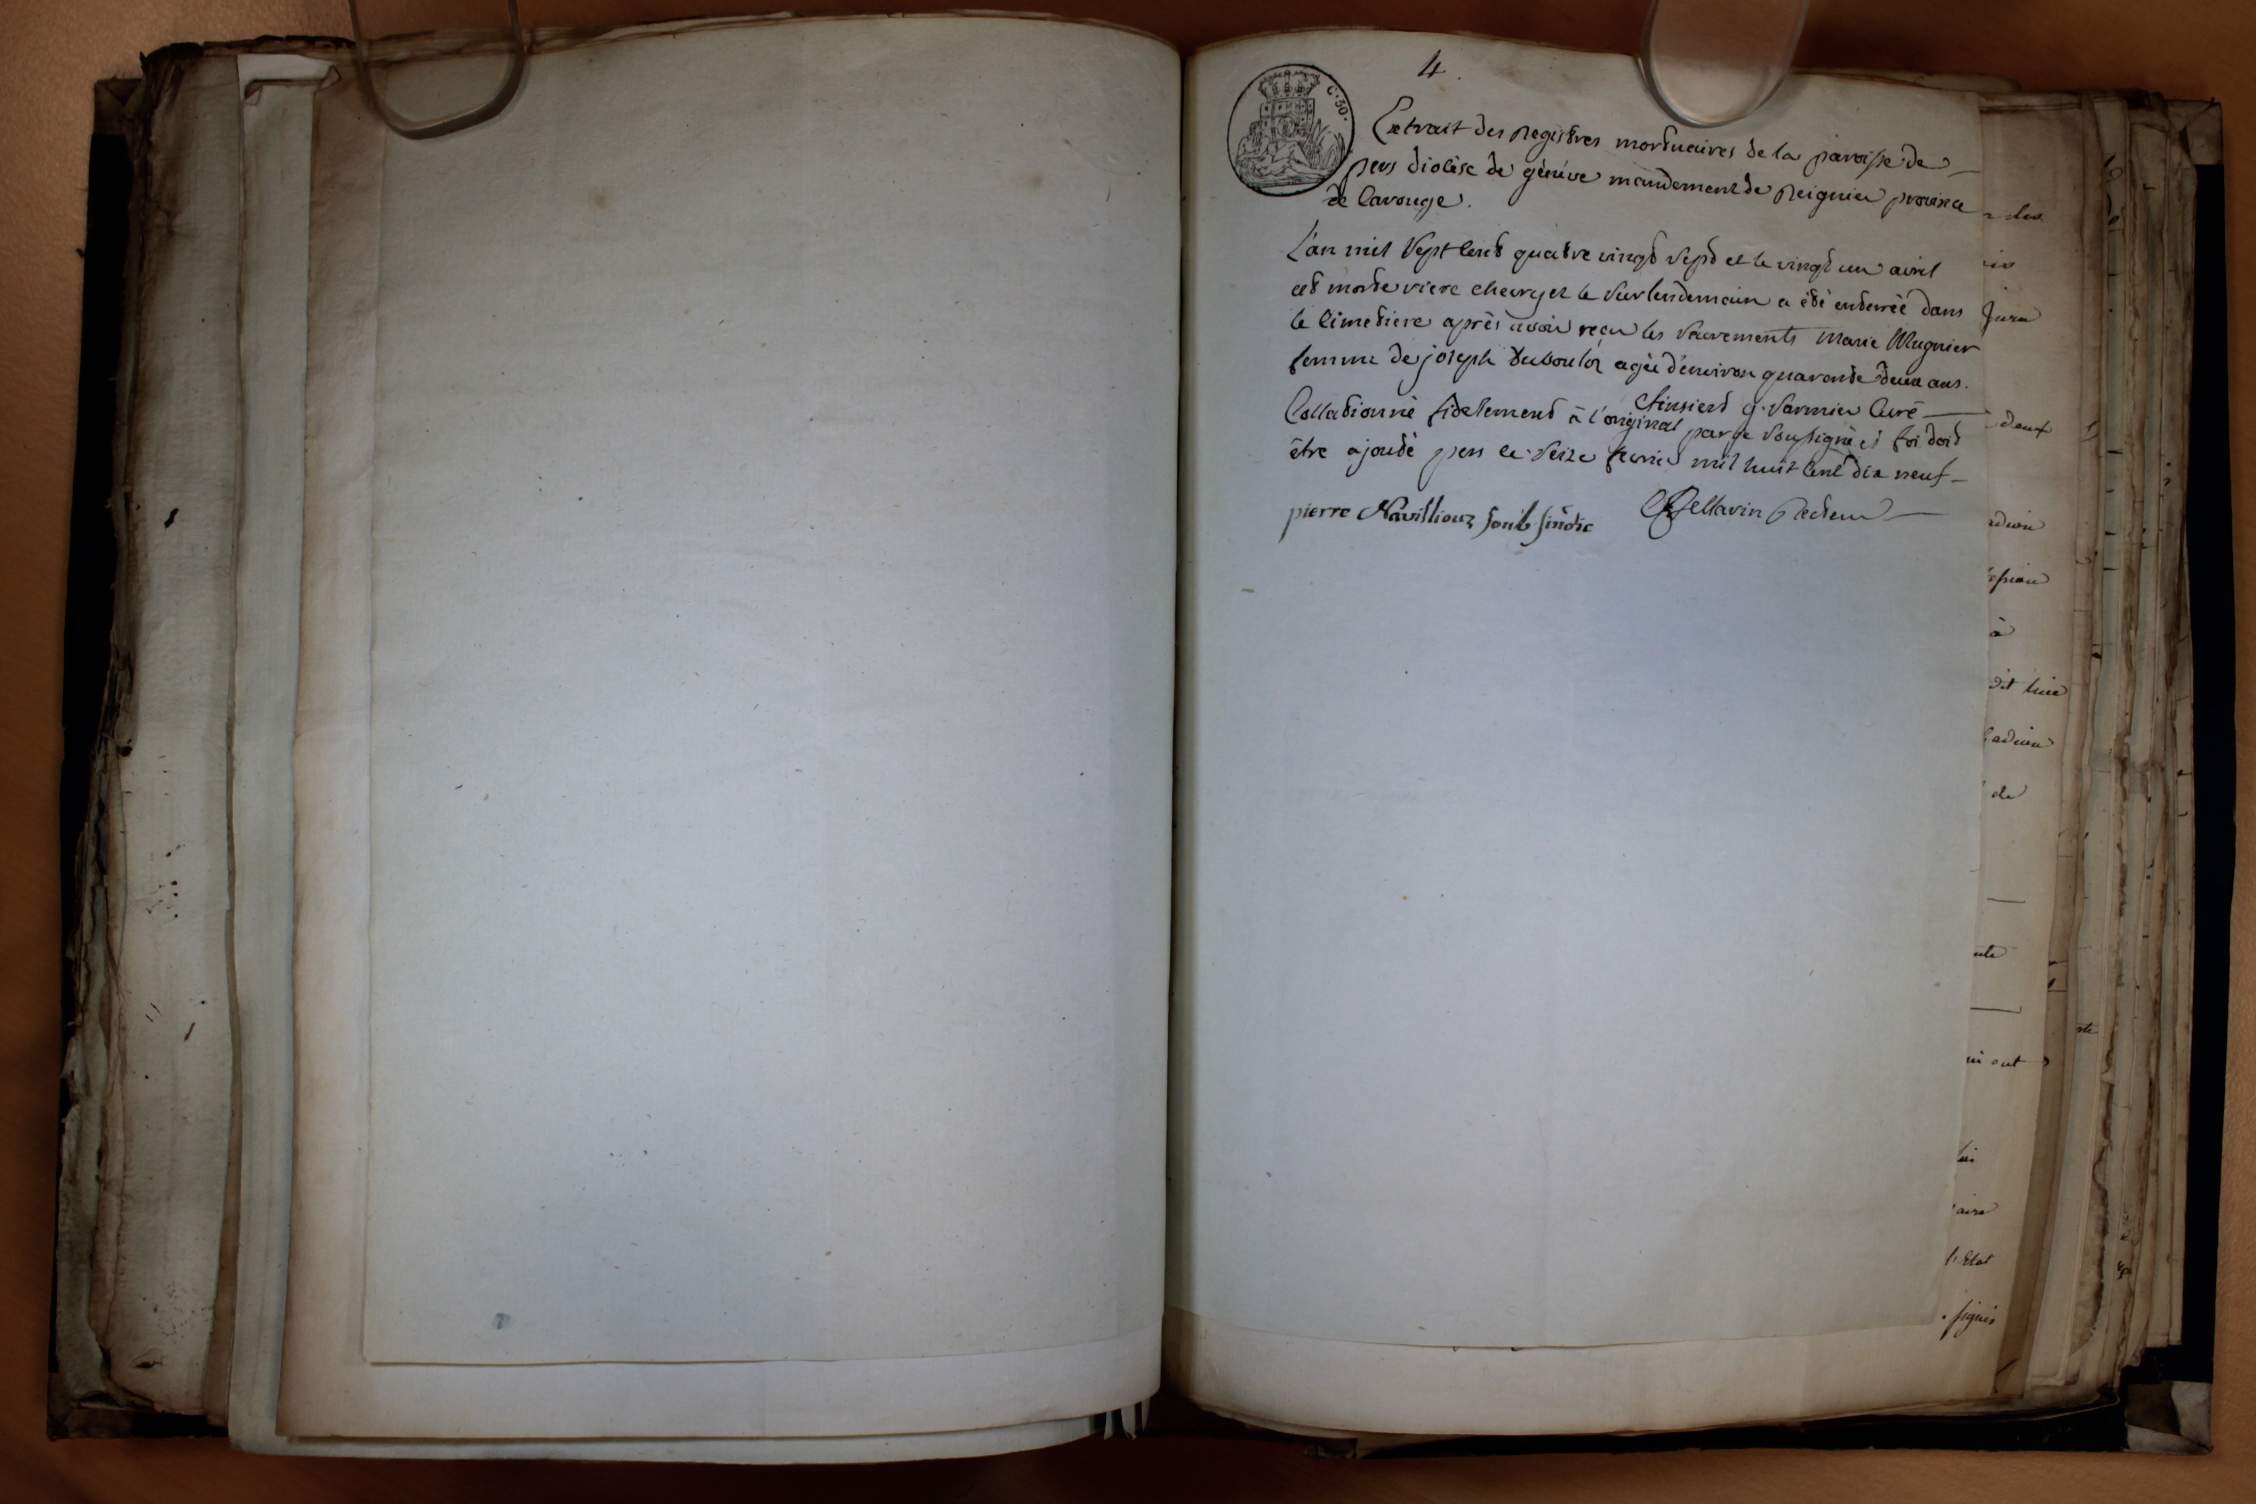 4.
C. 30.
Extrait des Registres mortuaires de la paroisse de
pers diocèse de genève mandement de Reignier province
de Carouge.
L'an mil sept cent quatre vingt sept et le vingt un avril
est morte viere cheuryer le surlendemain a été enterrée dans
le cimetiere après avoir reçu les sacrements marie Mugnier
femme de joseph dubouloz agée d'environ quarante deux ans.
ainsi est g. Varnier Curé
Collationné fidelement à l'original par je soussigné et foi doit
être ajouté pers ce seize fevrier mil huit cent dix neuf
pierre Navilliouz sindic Pellavin Recteur
Jura
deux
à
dit
de
ont
l'Etat
signés